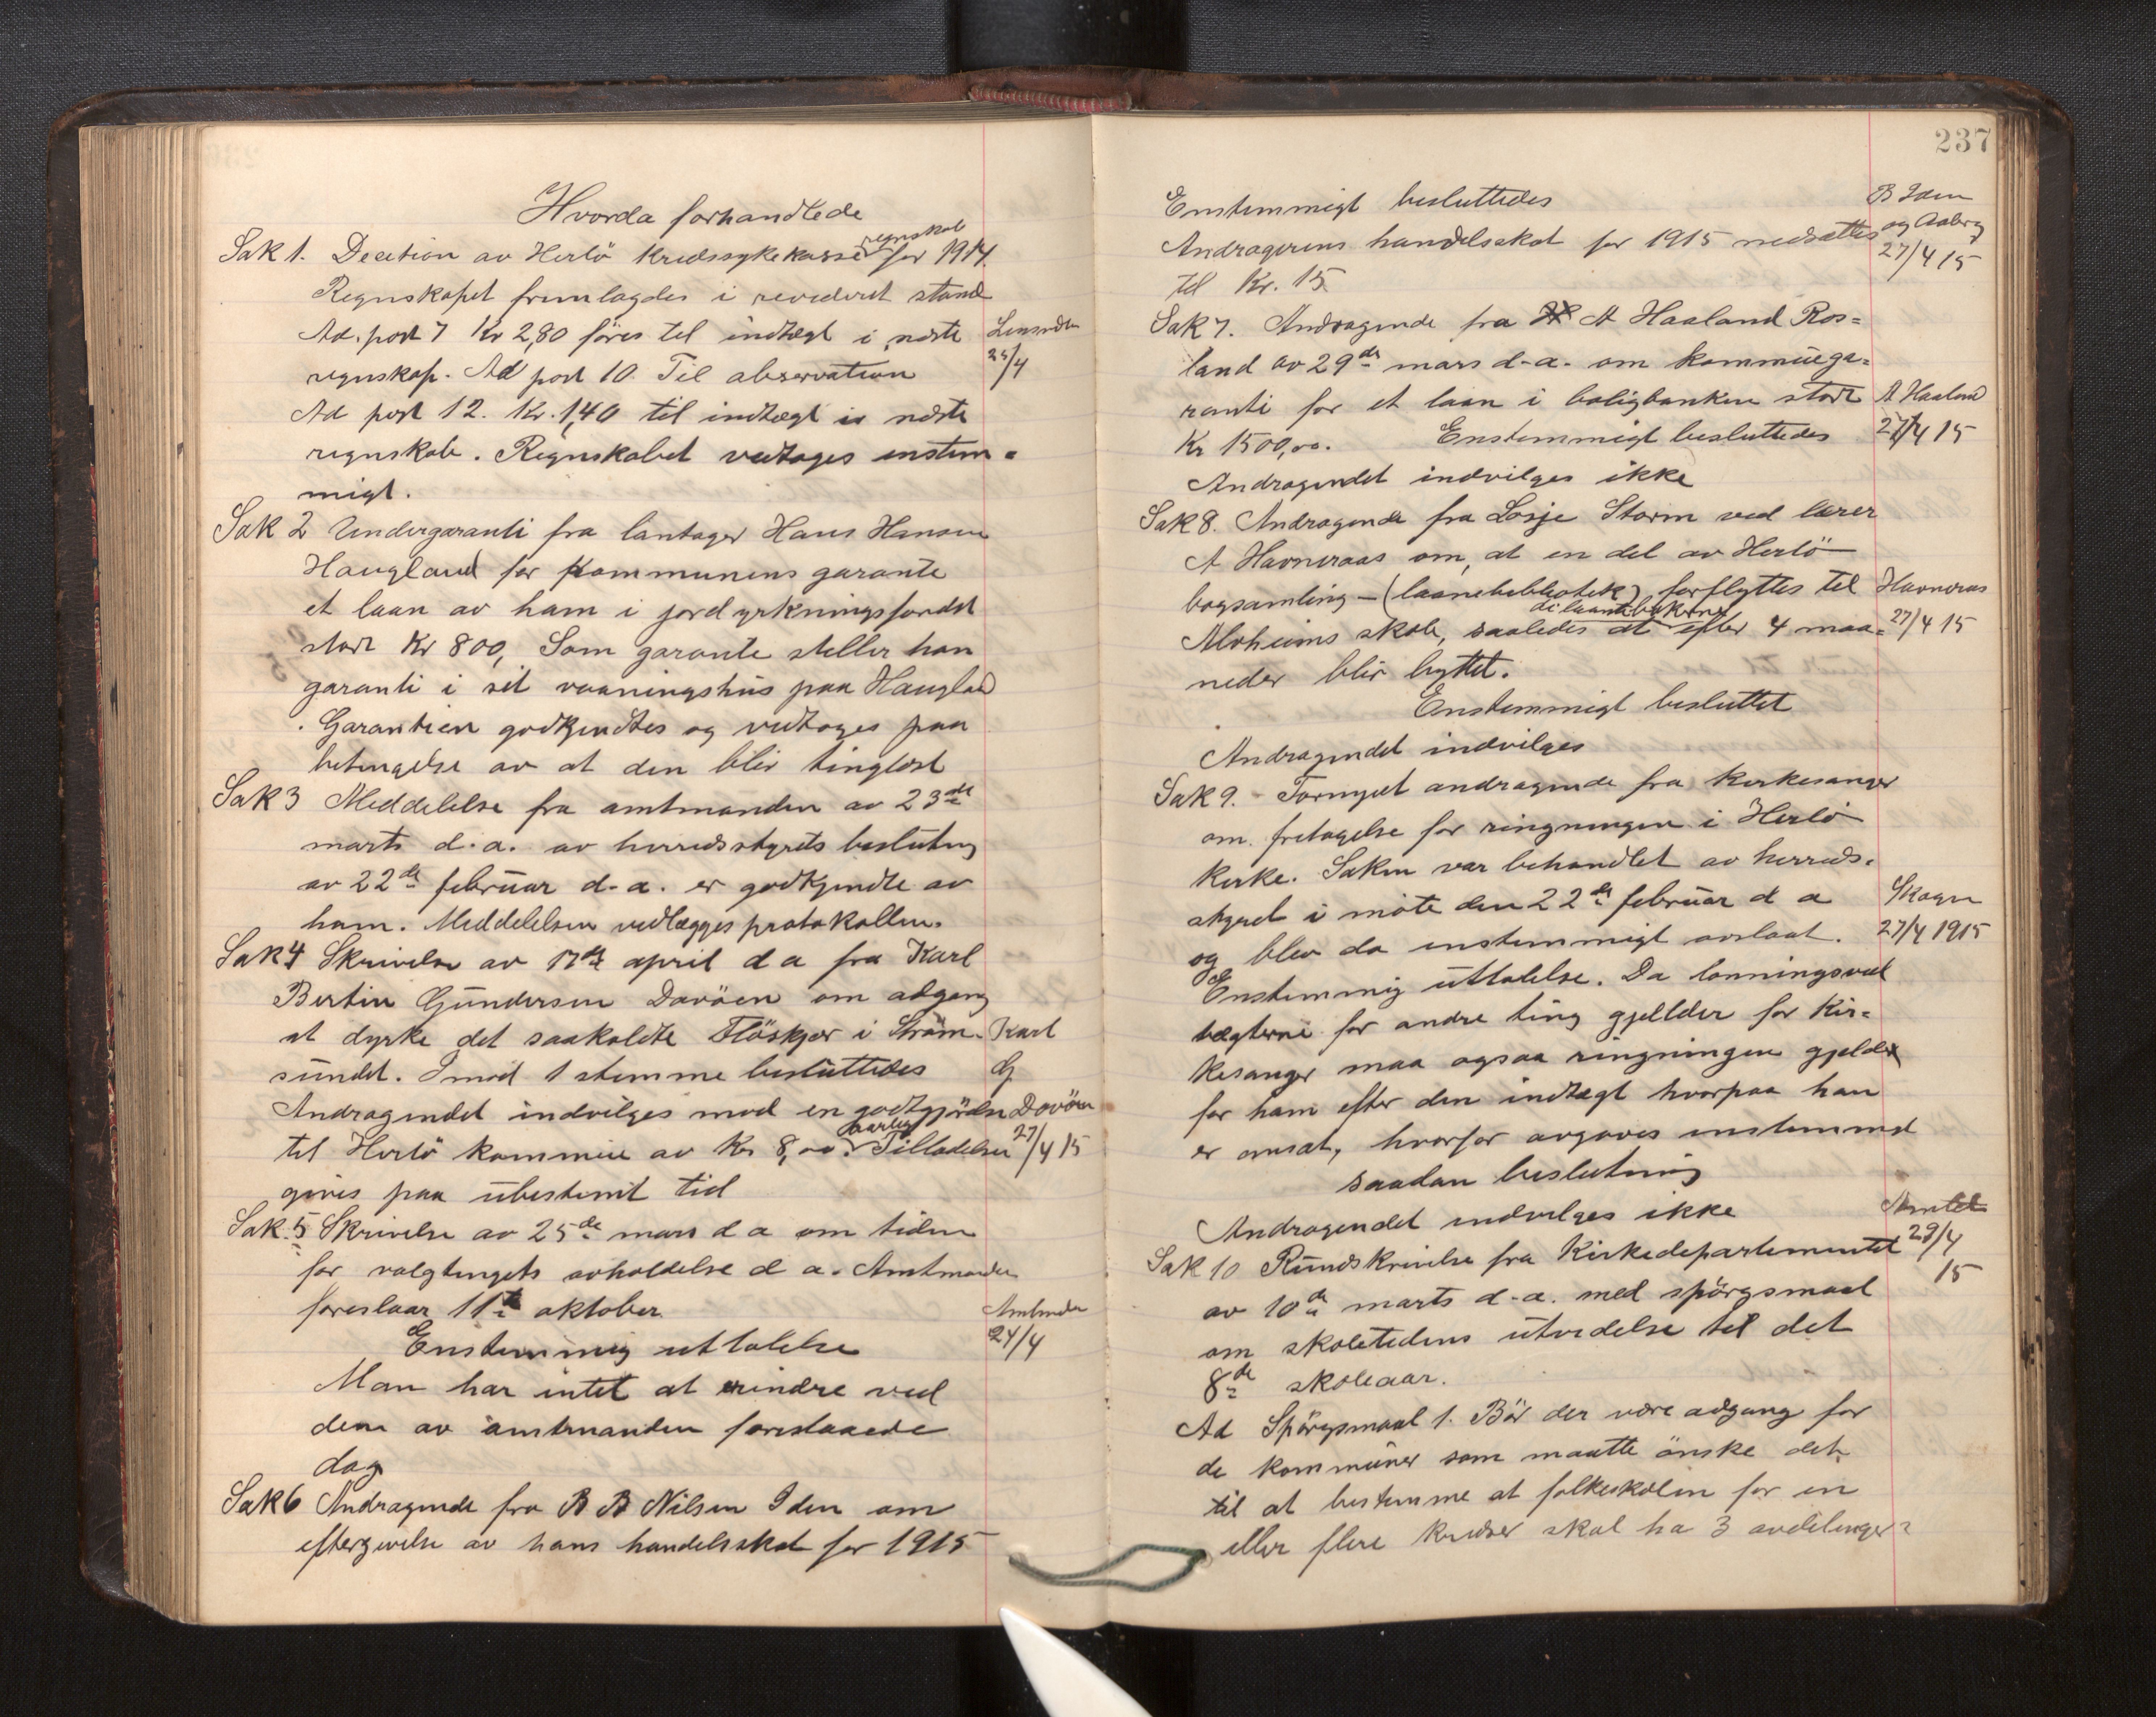 Hvorda forhandlede
Sak 1. Decition av Herlö Kredssykekasse regnskab for 1914.
Regnskapet fremlagdes i revideret stand
Ad. post 7 Kr 2,80 föres til indtægt i næste
regnskap. Ad post 10. Til observation
Ad post 12. Kr. 1,40 til indtægt i næste
regnskab. Regnskabet vedtages enstem=
migt.
Lensmden
24/4
Sak 2 Undergaranti fra lantager Hans Hansen
Haugland for Kommunens garante
et laan av ham i jorddyrkningsfondet
stort Kr 800, Som garante stiller han
garanti i sit vaaningshus paa Haugland
Garantien godkjendtes og vedtages paa
betingelse av at den blir tinglæst
Sak 3 Meddelelse fra amtmanden av 23de
marts d.a. av herredsstyrets beslutning
av 22de februar d.a. er godkjendte av
ham. Meddelelsen vedlægges protokollen.
Sak 4 Skrivelse av 17de april d a fra Karl
Bertin Gundersen Davöen om adgang
at dyrke det saakaldte Flöskjær i Ström-
sundet. Imod 1 stemme besluttedes
Andragendet indvilges mod en godtgjörelse
til Herlö kommune av Kr 8,00 aarlig. Tilladelsen
gives paa ubestemt tid
Karl
G
Davöen
27/4 15
Sak. 5 Skrivelse av 25de mars d a om tiden
for valgtingets avholdelse d a. Amtmanden
foreslaar 11te oktober
Enstemmig uttalelse
Man har intet at erindre ved
den av amtmanden foreslaaede
dag
Amtmden
24/4
Sak 6 Andragende fra B B Nilsen Iden om
eftergivelse av hans handelsskat for 1915
237
Enstemmigt besluttedes
Andragerens handelsskat for 1915 nedsættes
til Kr. 15
B Iden
og Aaberg
27/4 15
Sak 7. Andragende fra A Haaland Ros=
land av 29de mars d-a. om kommunega=
ranti for et laan i boligbanken stort
Kr 1500,00. Enstemmigt besluttedes
Andragendet indvilges ikke
A Haaland
27/4 15
Sak 8. Andragende fra Losje Storm ved lærer
A Havneraas om, at en del av Herlö
bogsamling - (laanebibliotek) forflyttes til
Alvheims skole, saaledes at de laante bökerne efter 4 maa=
neder blir byttet.
Enstemmigt besluttet
Andragendet indvilges
Havneraas
27/4 15
Sak 9. - Fornyet andragende fra Kirkesanger
om fretagelse for ringningen i Herlö
Kirke. Saken var behandlet av herreds=
styret i möte den 22de februar d a
og blev da enstemmigt avslaat.
Enstemmig uttalelse. Da lönningsved
tægterne for andre ting gjellder for Kir=
kesanger maa ogsaa ringningen gjelde
for ham efter den indtægt hvorpaa han
er ansat, hvorfor avgaves enstemmed
saadan beslutning
Andragendet indvilges ikke
Skagen
27/4 1915
Sak 10 Rundskrivelse fra Kirkedepartementet
av 10de marts d-a. med spörgsmaal
om skoletidens utvidelse til det
8de skoleaar.
Amtet
29/4
15
Ad Spörgsmaal 1. Bör der være adgang for
de kommuner som maatte önske det
til at bestemme at folkeskolen for en
eller flere kredser skal ha 3 avdelinger?